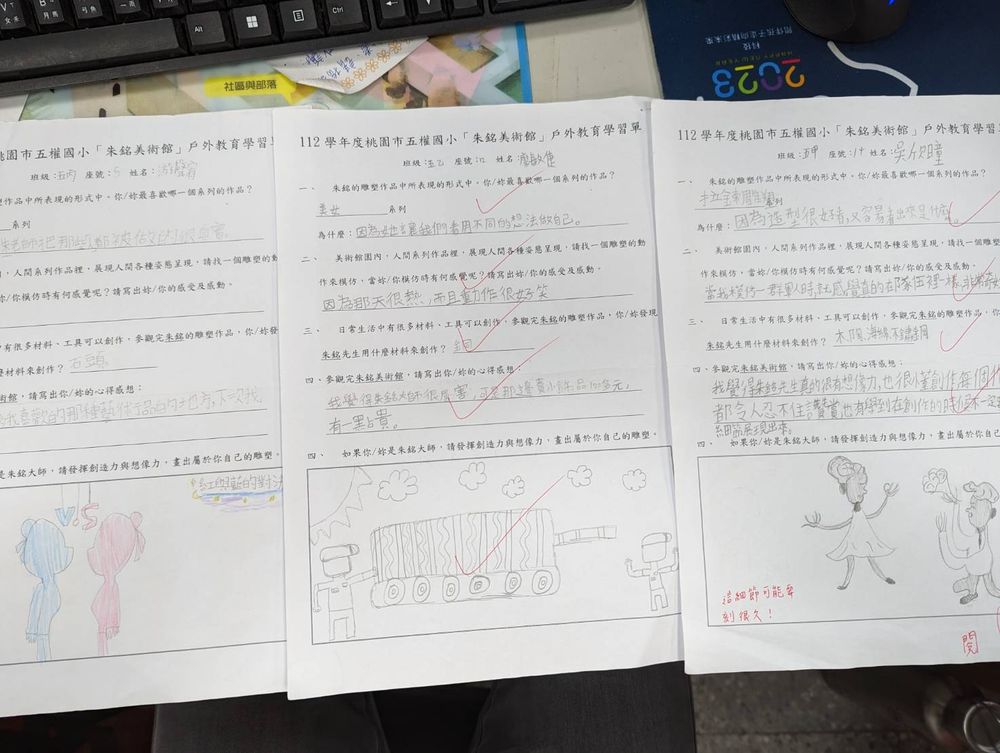 Alt
Ctrl
社區與部落
2023
HAPPY NEW YEAR
科技
陪伴孩子走向精彩未來
桃園市五權國小「朱銘美術館」戶外教育學習單
班級:五丙 座號:5 姓名:
作品中所表現的形式中。你/妳最喜歡哪一個系列的作品?
系列
,人間系列作品裡,展現人間各種姿態呈現,請找一個雕塑的動
你/妳模仿時有何感覺呢?請寫出妳/你的感受及感動。
有很多材料、工具可以創作,參觀完朱銘的雕塑作品,你/妳發
材料來創作? 石頭
術館,請寫出你/妳的心得感想:
是朱銘大師,請發揮創造力與想像力,畫出屬於你自己的雕塑。
V.S
紅與藍的對決
112 學年度桃園市五權國小「朱銘美術館」戶外教育學習單
班級:五乙 座號:12 姓名:
一、 朱銘的雕塑作品中所表現的形式中。你/妳最喜歡哪一個系列的作品?
美女 系列
為什麼:因為她玄裏我們者用不同的想法做自己。
二、 美術館園內,人間系列作品裡,展現人間各種姿態呈現,請找一個雕塑的動
作來模仿,當妳/你模仿時有何感覺呢?請寫出妳/你的感受及感動。
因為那天很熱,而且動作很好笑
三、 日常生活中有很多材料、工具可以創作,參觀完朱銘的雕塑作品,你/妳發現
朱銘先生用什麼材料來創作? 銅
四、參觀完朱銘美術館,請寫出你/妳的心得感想:
我覺得朱銘大師很厲害,可是那邊賣小作品100多元,
有一點貴。
四、 如果你/妳是朱銘大師,請發揮創造力與想像力,畫出屬於你自己的雕塑。
112 學年度桃園市五權國小「朱銘美術館」戶外教育學習
班級:五甲 座號:14 姓名:吳欣瞳
一、 朱銘的雕塑作品中所表現的形式中。你/妳最喜歡哪一個系列的作品?
系列
為什麼:因為造型很好看,又容易看出來是什麼。
二、 美術館園內,人間系列作品裡,展現人間各種姿態呈現,請找一個雕
作來模仿,當妳/你模仿時有何感覺呢?請寫出妳/你的感受及感動。
當我模仿一群軍人時,就感覺真的在隊伍裡一樣,非常奇妙
三、 日常生活中有很多材料、工具可以創作,參觀完朱銘的雕塑作品,你
朱銘先生用什麼材料來創作? 木頭、海綿、不鏽鋼
四、參觀完朱銘美術館,請寫出你/妳的心得感想:
我覺得朱銘先生真的很有想像力,也很懂創作,每個作
都令人忍不住讚賞,也有學到在創作的時候不一定
細節展現出來。
四、 如果你/妳是朱銘大師,請發揮創造力與想像力,畫出屬於你自己
這細節可能要
刻很久!
閱